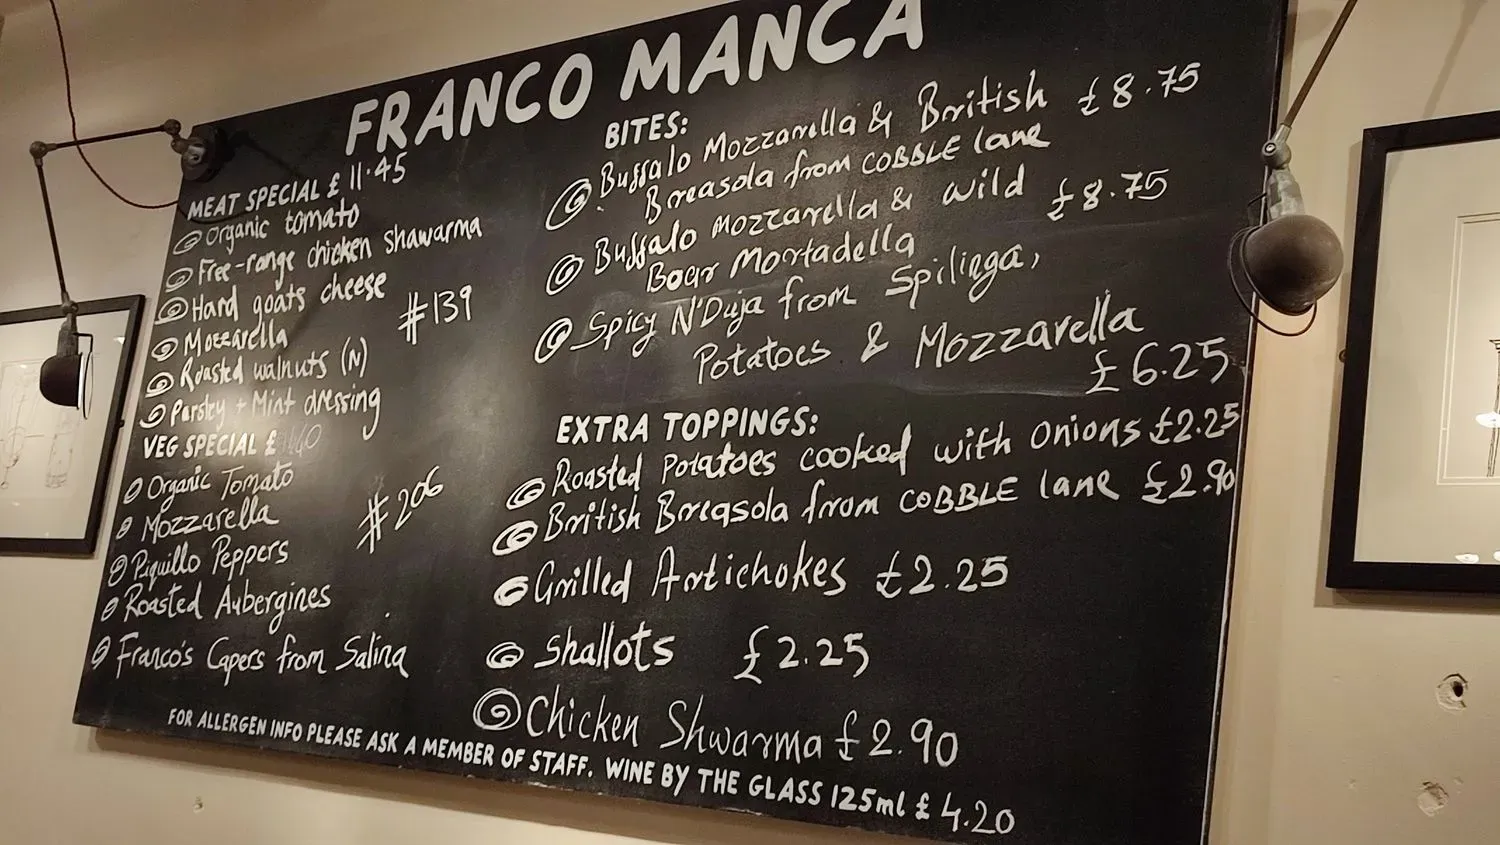 FRANCO MANCA
MEAT SPECIAL £ 11.45
Organic tomato
Free-range chicken shawarma
Hard goats cheese
Mozzarella
#139
Roasted walnuts (N)
Parsley + Mint dressing
VEG SPECIAL £
Organic Tomato
Mozzarella
#206
Piquillo Peppers
Roasted Aubergines
Franco's Capers from Salina
BITES:
Buffalo Mozzarella & British £8.75
Breasola from COBBLE lane
Buffalo mozzarella & wild £8.75
Boar Mortadella
Spicy N'Duja from Spilinga,
Potatoes & Mozzarella
£6.25
EXTRA TOPPINGS:
Roasted Potatoes cooked with onions £2.25
British Breasola from COBBLE lane £2.90
Grilled Artichokes £2.25
Shallots £2.25
Chicken Shwarma £2.90
FOR ALLERGEN INFO PLEASE ASK A MEMBER OF STAFF. WINE BY THE GLASS 125ml £ 4.20